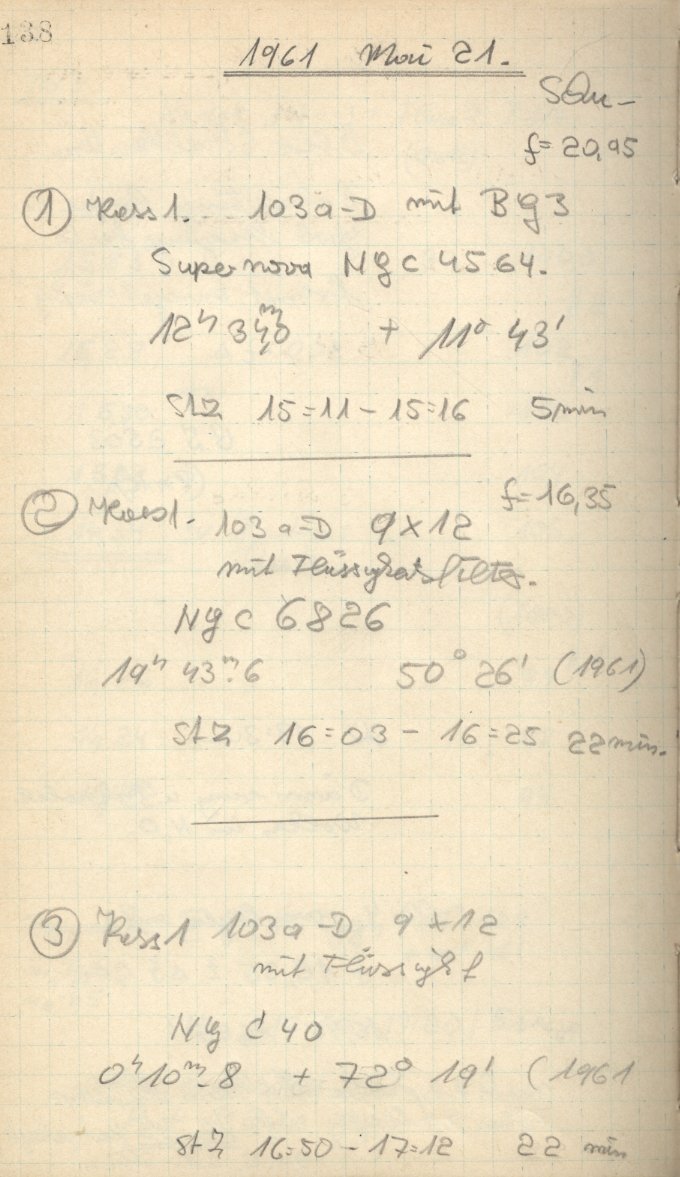 138
1961 Mai 21.
f= 20,95
① Kass1. 103a-D mit BG3
Supernova NGC 4564.
12ʰ 34ᵐ,0 + 11° 43'
StZ 15=11 - 15=16 5min
② Kass1. 103a-D 9x12 f=16,35
mit Flüssigkeitsfilter.
NGC 6826
19ʰ 43ᵐ.6 50° 26' (1961)
StZ 16=03 - 16=25 22min.
③ Kass1 103a-D 9x12
mit Flüssigkf
NGC 40
0ʰ10ᵐ.8 + 72° 19' (1961
StZ 16=50 - 17=12 22 min